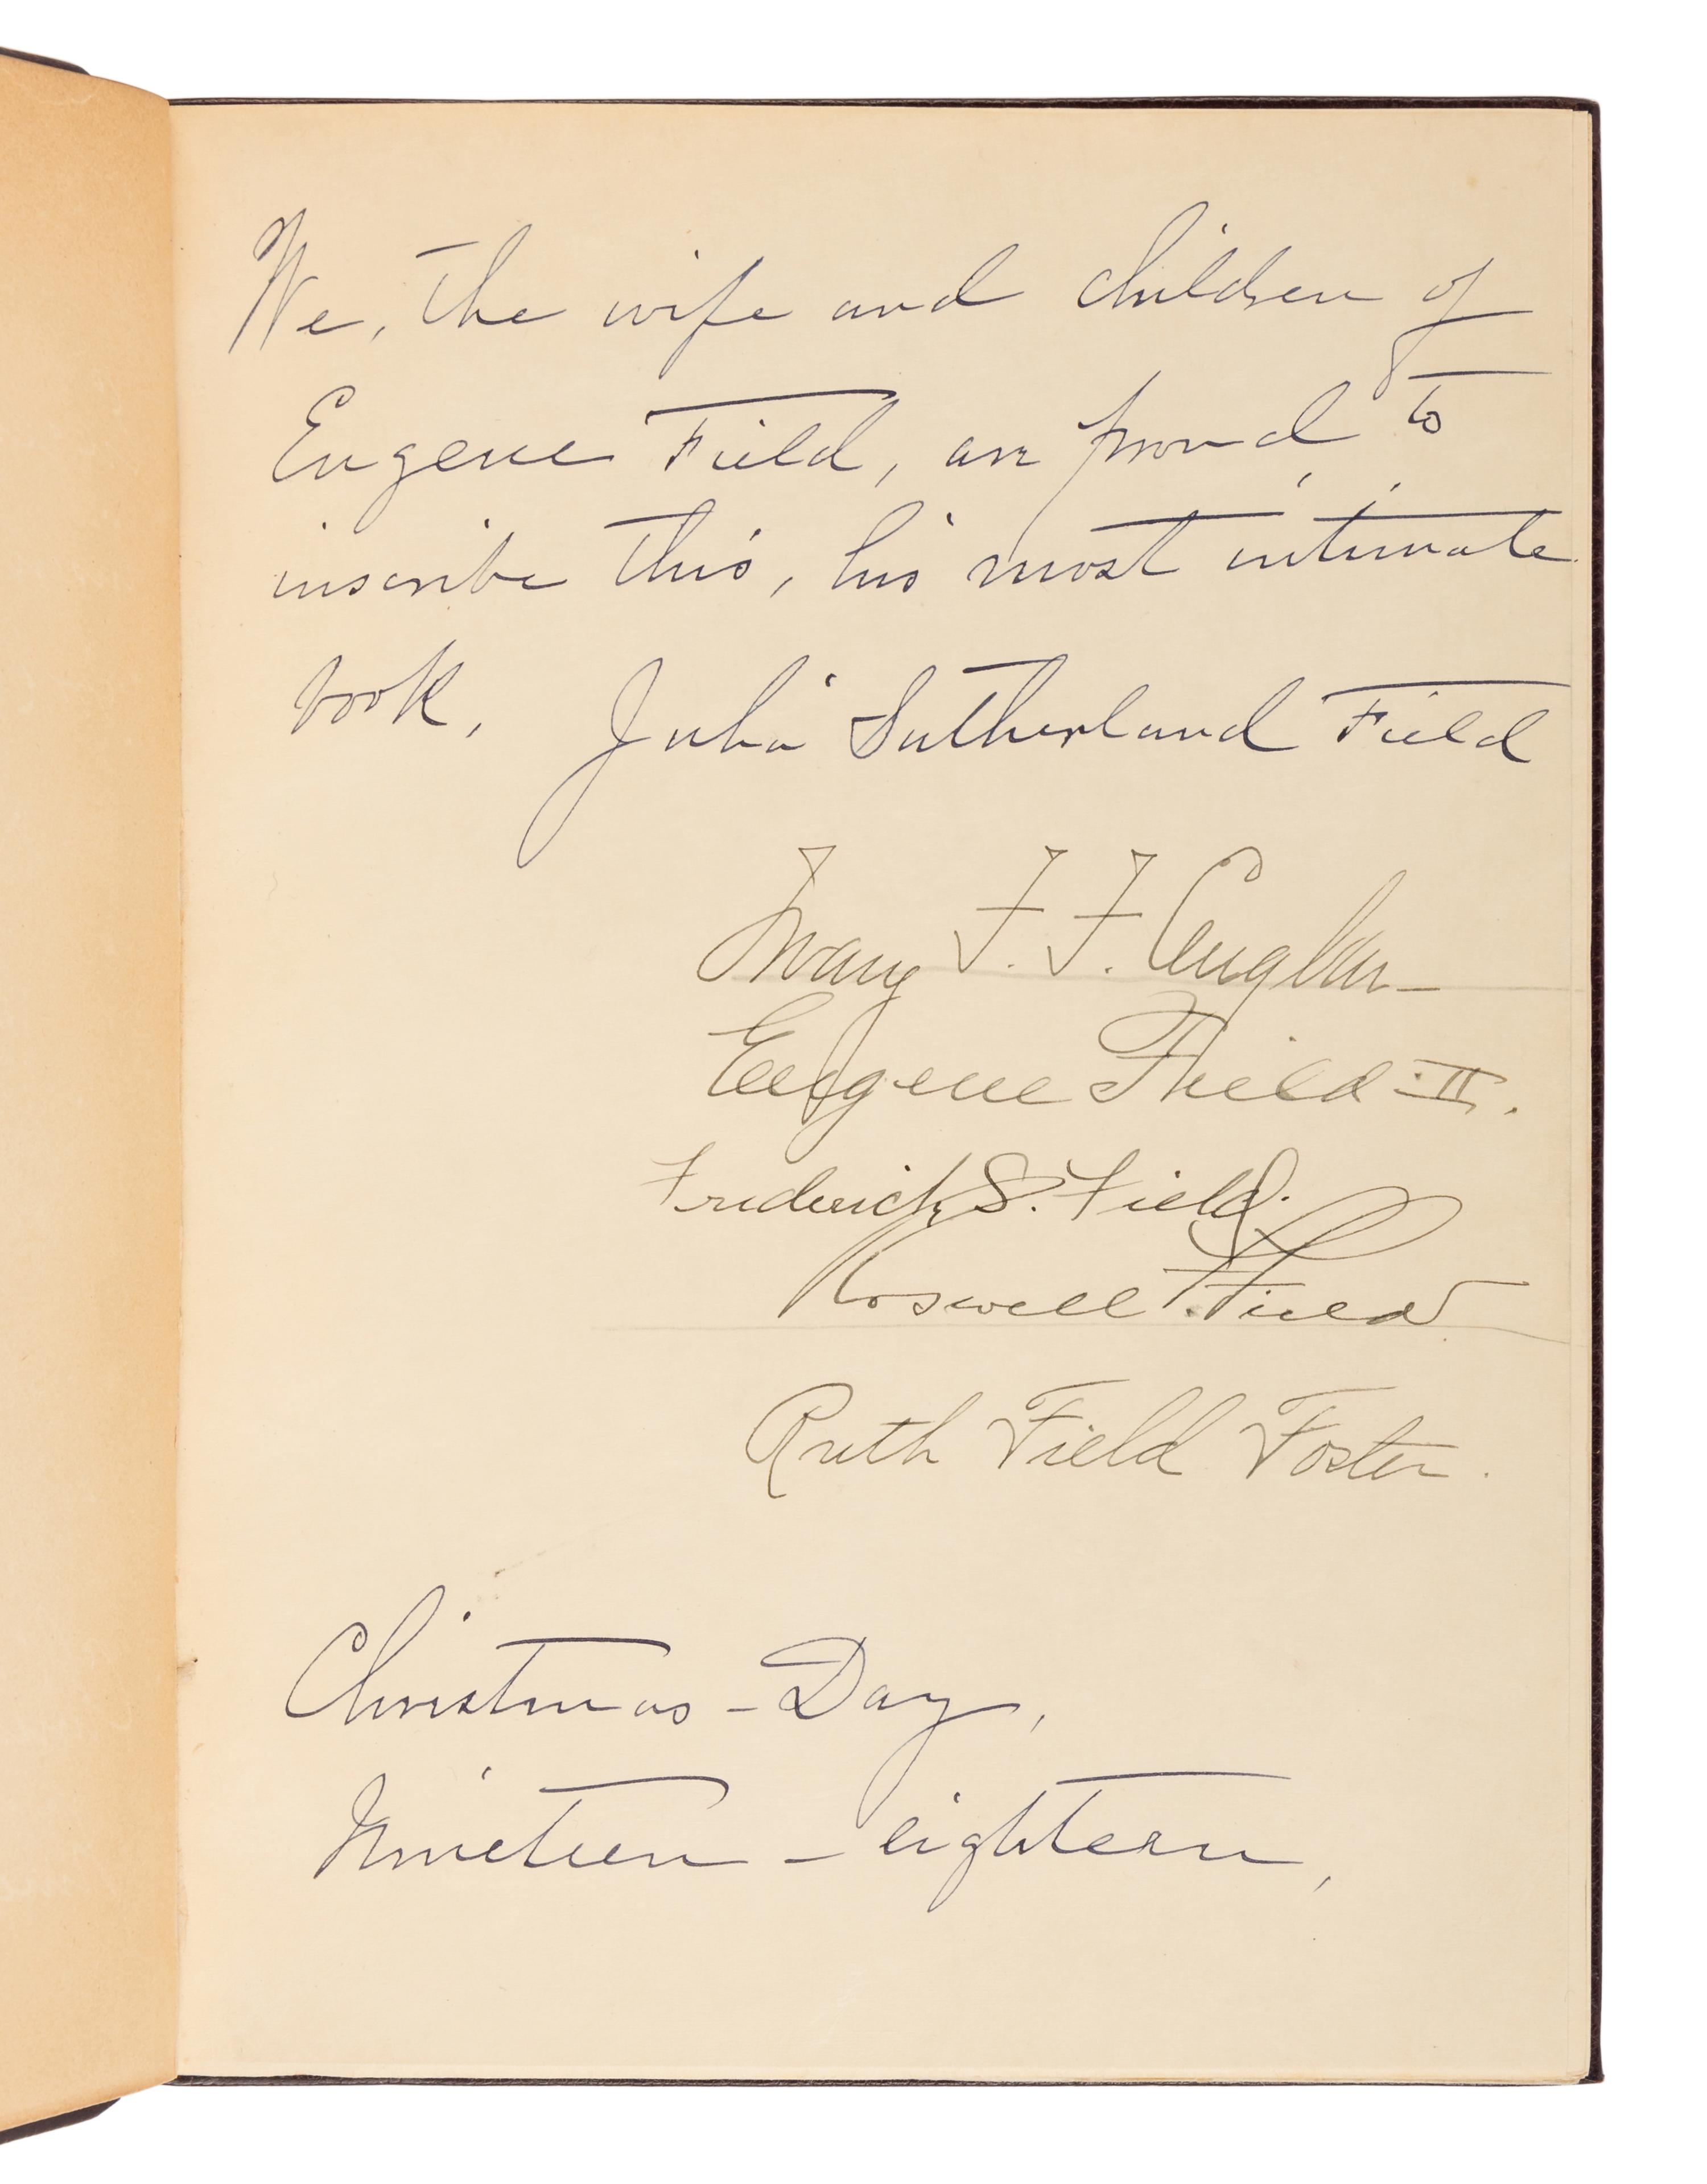 We, the wife and children of
Eugene Field, are proud to
inscribe this, his most intimate
book.
Julia Sutherland Field
Mary F. F. Englar
Eugene Field II.
Frederick S. Field.
Roswell F. Field
Ruth Field Foster.
Christmas - Day,
Nineteen - eighteen,